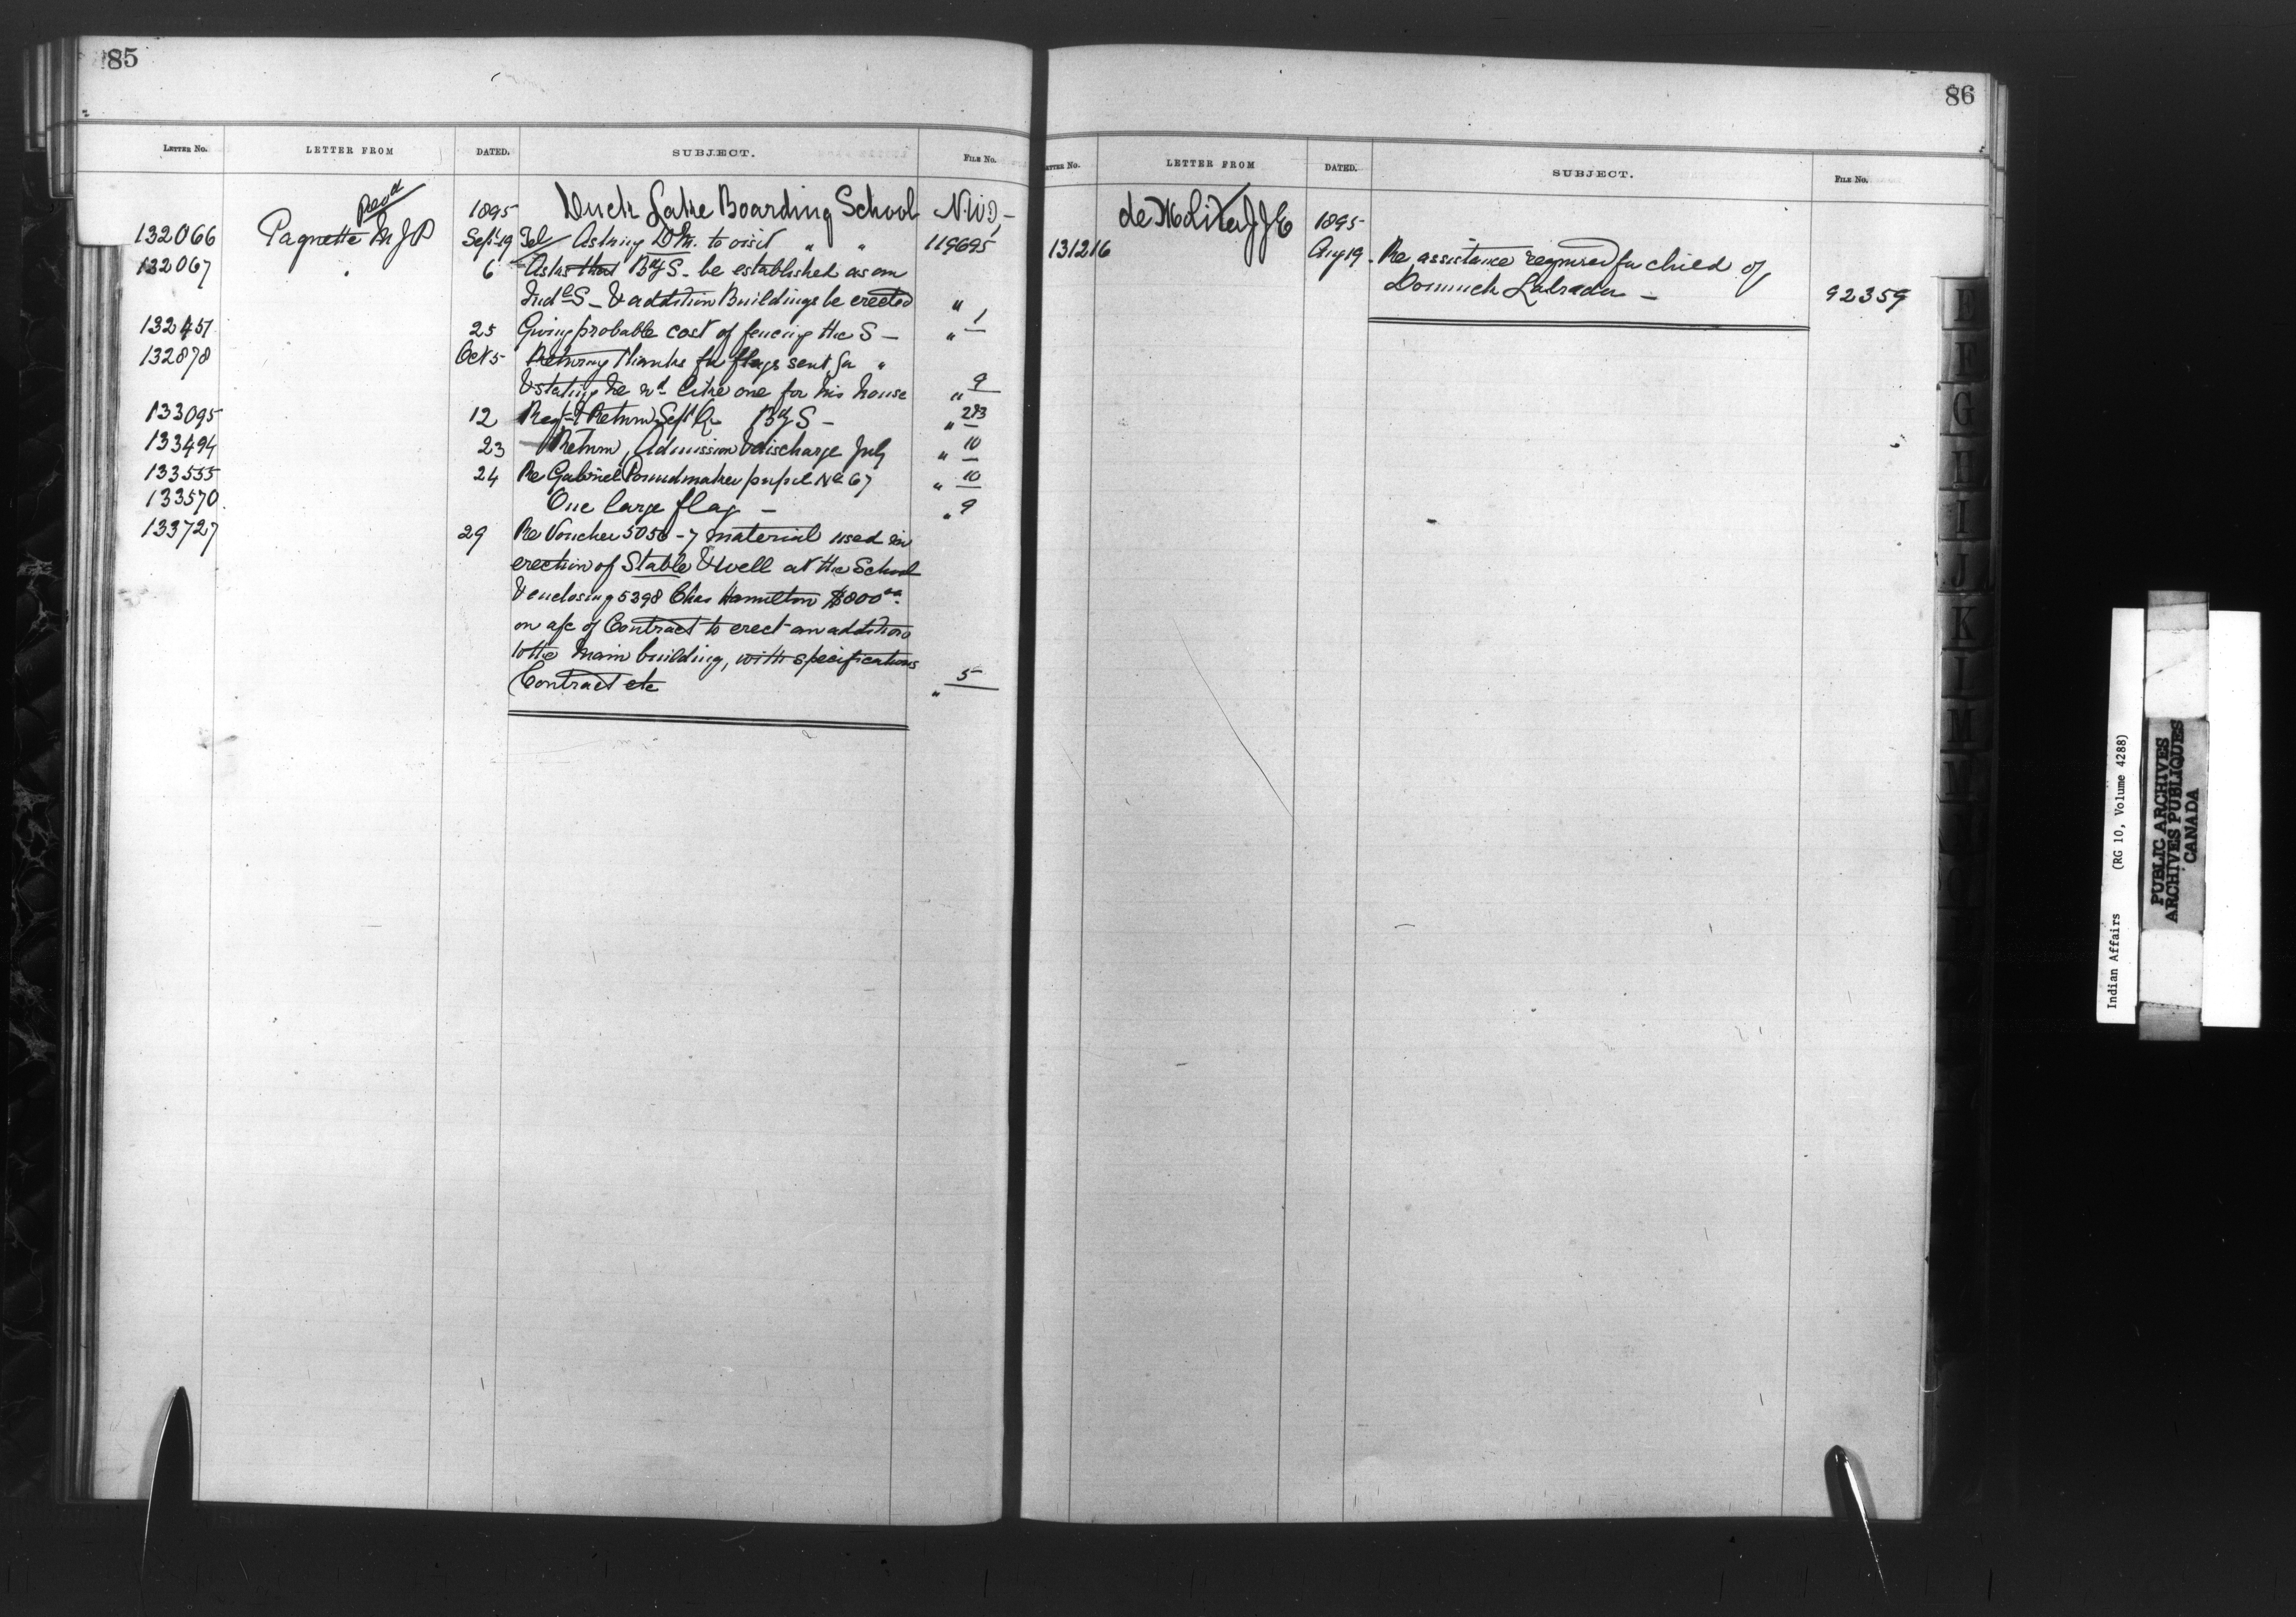 85
LETTER NO. LETTER FROM DATED. SUBJECT. FILE NO.
Revd 1895 Duck Lake Boarding School N.W.T.
132066 Paquette M J P Sept 19 Tel Asking D.M. to visit " " 119695
132067 " 6 Asks that Bdg S. be established as an
Indl S - & addition Buildings be erected " 1
132451 25 Giving probable cost of fencing the S - "
132878 Oct 5 Returning thanks for flags sent for "
& stating he wd like one for his house " 9
133095 12 Regr & Return Sept Qr Bdg S - " 2&3
133494 23 Return, Admission & discharge July " 10
133555 24 Re Gabriel Poundmaker pupil No 67 " 10
133570 One large flag - " 9
133727 29 Re Voucher 5056-7 material used in
erection of Stable & well at the School
& enclosing 5398 Chas Hamilton $800.00
on a/c of Contract to erect an addition
to the main building, with specifications
Contract etc " 5
86
LETTER NO. LETTER FROM DATED. SUBJECT. FILE NO.
de Molitor J J E 1895
131216 Aug 19 Re assistance required for child of
Labrador - 92359
E
F
G
H
I
J
K
L
M
Indian Affairs (RG 10, Volume 4288)
PUBLIC ARCHIVES
ARCHIVES PUBLIQUES
CANADA